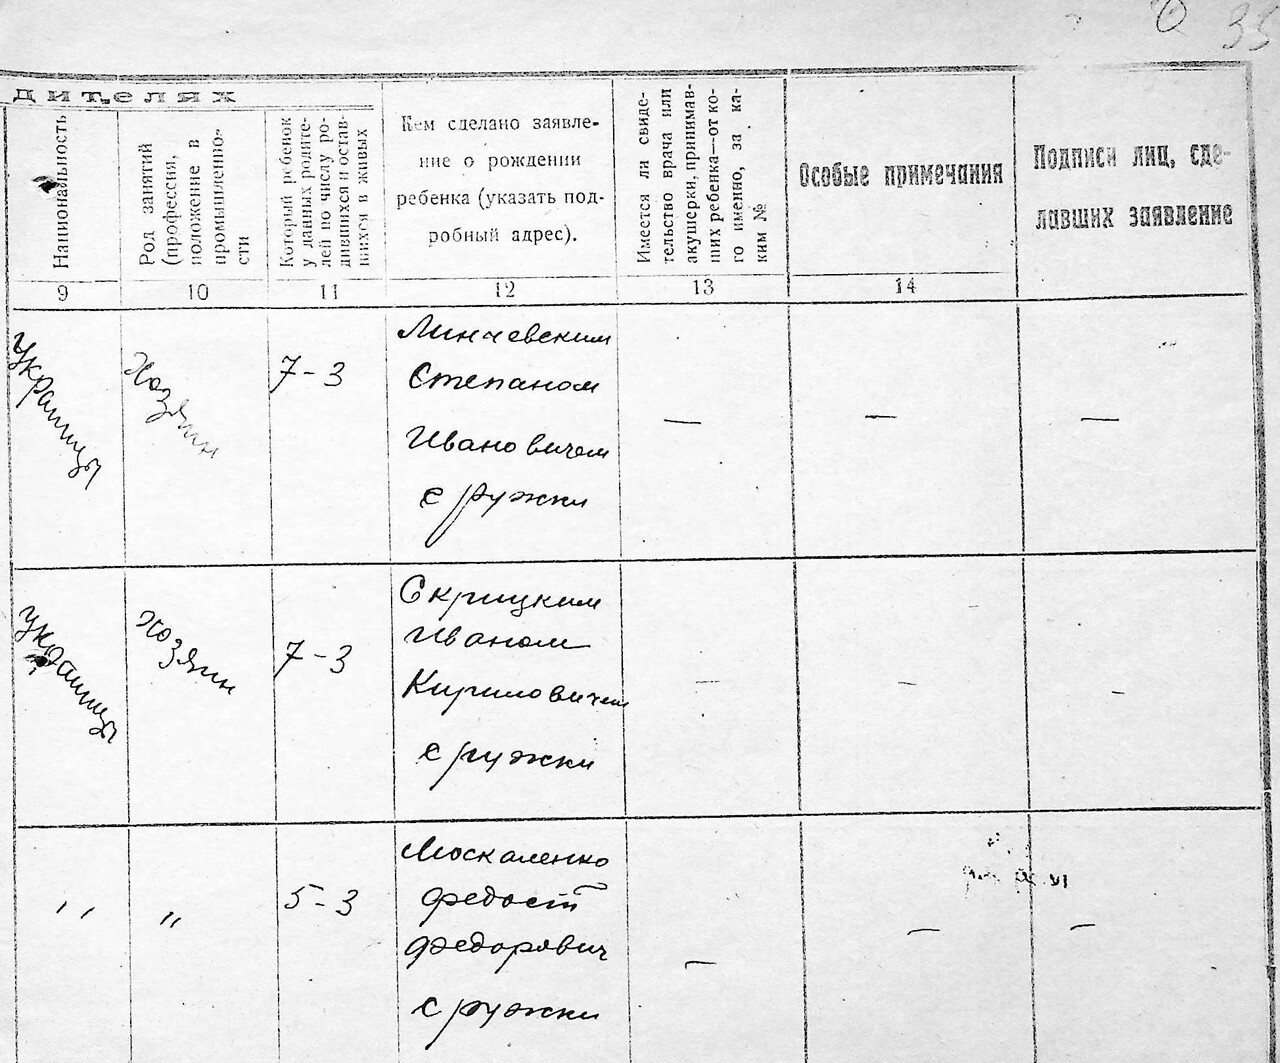 35
дителях
Национальность
Род занятий
(профессия,
положение в
промышленно-
сти
Который ребенок
у данных родите-
лей по числу ро-
дившихся и остав-
шихся в живых
Кем сделано заявле-
ние о рождении
ребенка (указать под-
робный адрес).
Имеется ли свиде-
тельство врача или
акушерки, принимав-
ших ребенка—от ко-
го именно, за ка-
ким №
Особые примечания
Подписи лиц, сде-
лавших заявление
9 10 11 12 13 14
Украинцы
Хозяин
7-3
Линчевским
Степаном
Ивановичем
с Ружки
—
—
—
Украинцы
Хозяин
7-3
Скрицким
Иваном
Кириловичем
с Ружки
—
—
—
〃
〃
5-3
Москаленко
Федост
Федорович
с Ружки
—
—
—